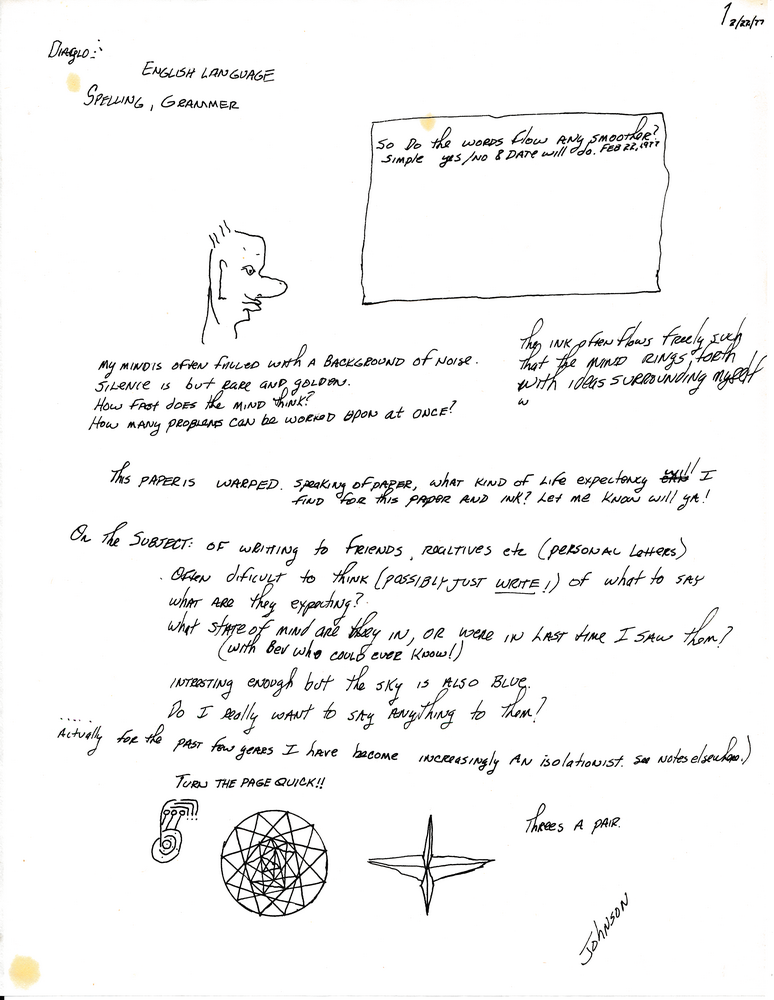 1 2/22/77
DIAGLO:
ENGLISH LANGUAGE
SPELLING, GRAMMER
So Do the WORDS flow ANY SMOOTHER?
SIMPLE YES/NO & DATE will do. FEB 22, 1977
MY MIND IS OFTEN FILLED WITH A BACKGROUND OF NOISE.
SILENCE IS but RARE AND GOLDEN.
HOW FAST DOES the MIND think?
HOW MANY PROBLEMS CAN be WORKED UPON at ONCE?
The INK often flows freely such
That the MIND RINGS forth
with IDEAS SURROUNDING myself
w
This PAPER IS WARPED. Speaking of PAPER, WHAT KIND of Life expectency I
FIND FOR this PAPER AND INK? Let me KNOW will ya!
On The SUBJECT: OF WRITTING to FRIENDS, REALTIVES etc (PERSONAL Letters)
. OFten dificult to think (possibly JUST WRITE!) of what to SAY
WHAT ARE they expecting?
what STATE of mind are they IN, OR WERE IN LAST time I SAW them?
(with Bev who COULD EVER KNOW!)
INTRESTING enough but the sky is ALSO BLUE.
Do I really WANT to SAY ANYTHING to Them?
..... Actually for the past few years I have become INCREASINGLY AN isolationist. see NOTES elsewhere.)
TURN THE PAGE QUICK!!
Threes A PAIR.
JOHNSON